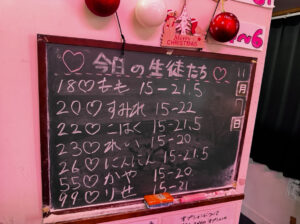 Merry
CHRISTMAS
~6
♡今日の生徒たち♡
11月7日
18♡もも 15-21.5
20♡すみれ 15-22
22♡こはく 15-21.5
23♡れい 15-20
26♡にんにん 15-21.5
55♡かや 15-20
99♡りせ 15-21